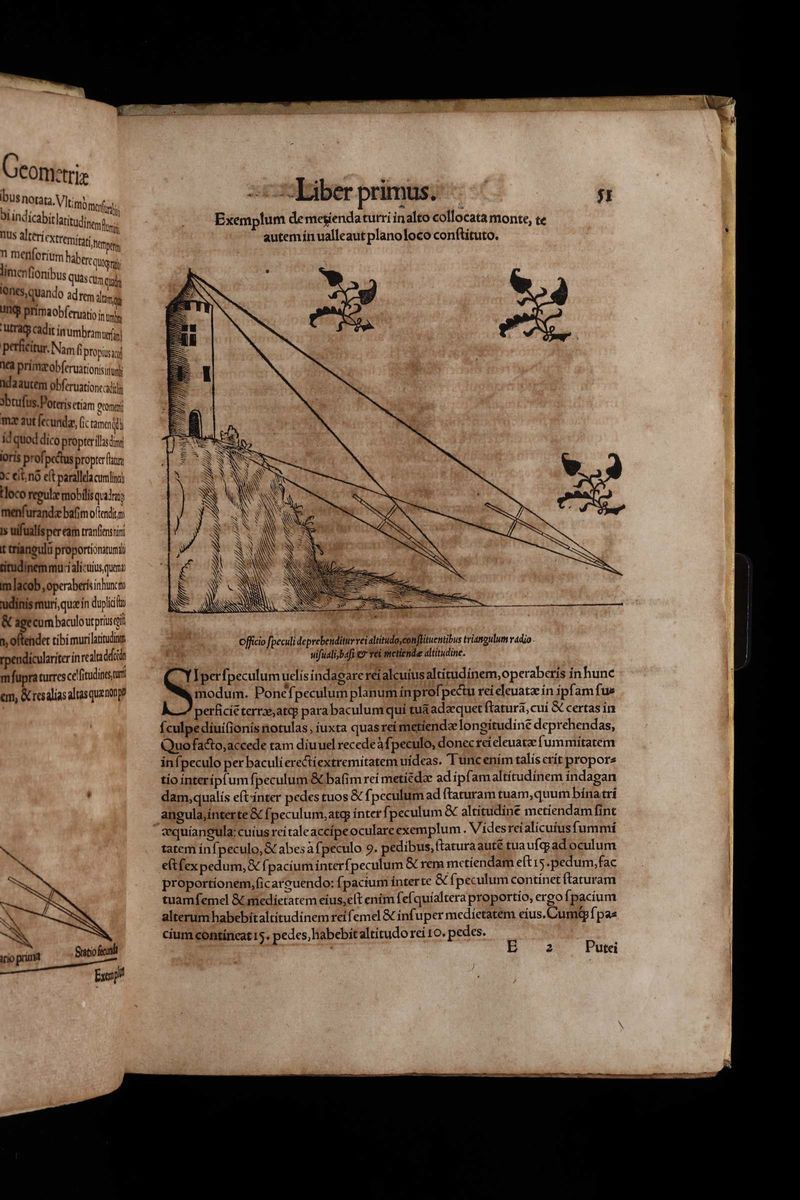 Geometriæ
ibus notata. Vltimò
bi indicabit latitudinem
nus alteri extremitati,
n mensorium habere
dimensionibus quas cum
iones, quando ad rem
unq́ prima obseruatio in
utraq́ cadit in umbram
perficitur. Nam si propius
nea primæ obseruationis
nda autem obseruatione
obtusus. Poteris etiam
imæ aut secundæ, sic tamen
id quod dico propter illas
ioris prospectus propter
oc est, nõ est parallela cum
loco regulæ mobilis
mensurandæ basim ostendit
is uisualis per eam transiens
t triangulũ proportionatum
titudinem muri alicuius,
im Iacob, operaberis in hunc
tudinis muri, quæ in duplici
& age cum baculo ut prius
n, ostendet tibi muri latitudinem
rpendiculariter in re alta
m supra turres celsitudines,
em, & res alias altas quæ non
atio prima Statio secunda
Liber primus. 51
Exemplum de metienda turri in alto collocata monte, te
autem in ualle aut plano loco constituto.
Officio speculi deprehenditur rei altitudo, constituentibus triangulum radio
uisuali, basi & rei metiendæ altitudine.
SI per speculum uelis indagare rei alcuius altitudinem, operaberis in hunc
modum. Pone speculum planum in prospectu rei eleuatæ in ipsam su⸗
perficiẽ terræ, atq́ para baculum qui tuã adæquet staturã, cui & certas in
sculpe diuisionis notulas, iuxta quas rei metiendæ longitudinẽ deprehendas,
Quo facto, accede tam diu uel recede à speculo, donec rei eleuatæ summitatem
in speculo per baculi erecti extremitatem uideas. Tunc enim talis erit propor⸗
tio inter ipsum speculum & basim rei metiẽdæ ad ipsam altitudinem indagan
dam, qualis est inter pedes tuos & speculum ad staturam tuam, quum bina tri
angula, inter te & speculum, atq́ inter speculum & altitudinẽ metiendam sint
æquiangula: cuius rei tale accipe oculare exemplum. Vides rei alicuius summi
tatem in speculo, & abes à speculo 9. pedibus, statura autẽ tua usq́ ad oculum
est sex pedum, & spacium inter speculum & rem metiendam est 15. pedum, fac
proportionem, sic arguendo: spacium inter te & speculum continet staturam
tuam semel & medietatem eius, est enim sesquialtera proportio, ergo spacium
alterum habebit altitudinem rei semel & insuper medietatem eius. Cumq́ spa⸗
cium contineat 15. pedes, habebit altitudo rei 10. pedes.
E 2 Putei